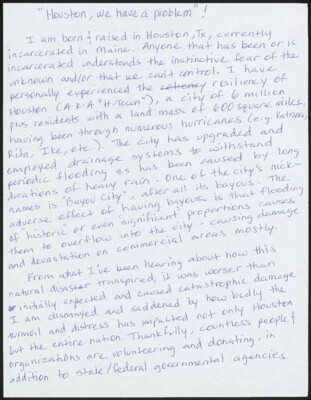 "Houston, we have a problem"!
I am born & raised in Houston, Tx, currently
incarcerated in Maine. Anyone that has been or is
incarcerated understands the instinctive fear of the
unknown and/or that we can't control. I have
personally experienced the resiliency of
Houston (A.K.A "H-Town"), a city of 6 million
plus residents with a land mass of 600 square miles,
having been through numerous hurricanes (e.g.
Rita, Ike, etc.). The city has upgraded and
employed drainage systems to withstand
periodic flooding as has been caused by long
durations of heavy rain. One of the city's nick-
names is "Bayou City", after all its bayous. The
adverse effect of having bayous is that flooding
of 'historic' or even 'significant' proportions causes
them to overflow into the city - causing damage
and devastation on commercial areas mostly.
From what I've been hearing about how this
natural disaster transpired, it was worser than
initially expected and caused catastrophic damage
I am dismayed and saddened by how badly the
turmoil and distress has impacted not only Houston
but the entire nation. Thankfully, countless people &
organizations are volunteering and donating, in
addition to state/federal governmental agencies.